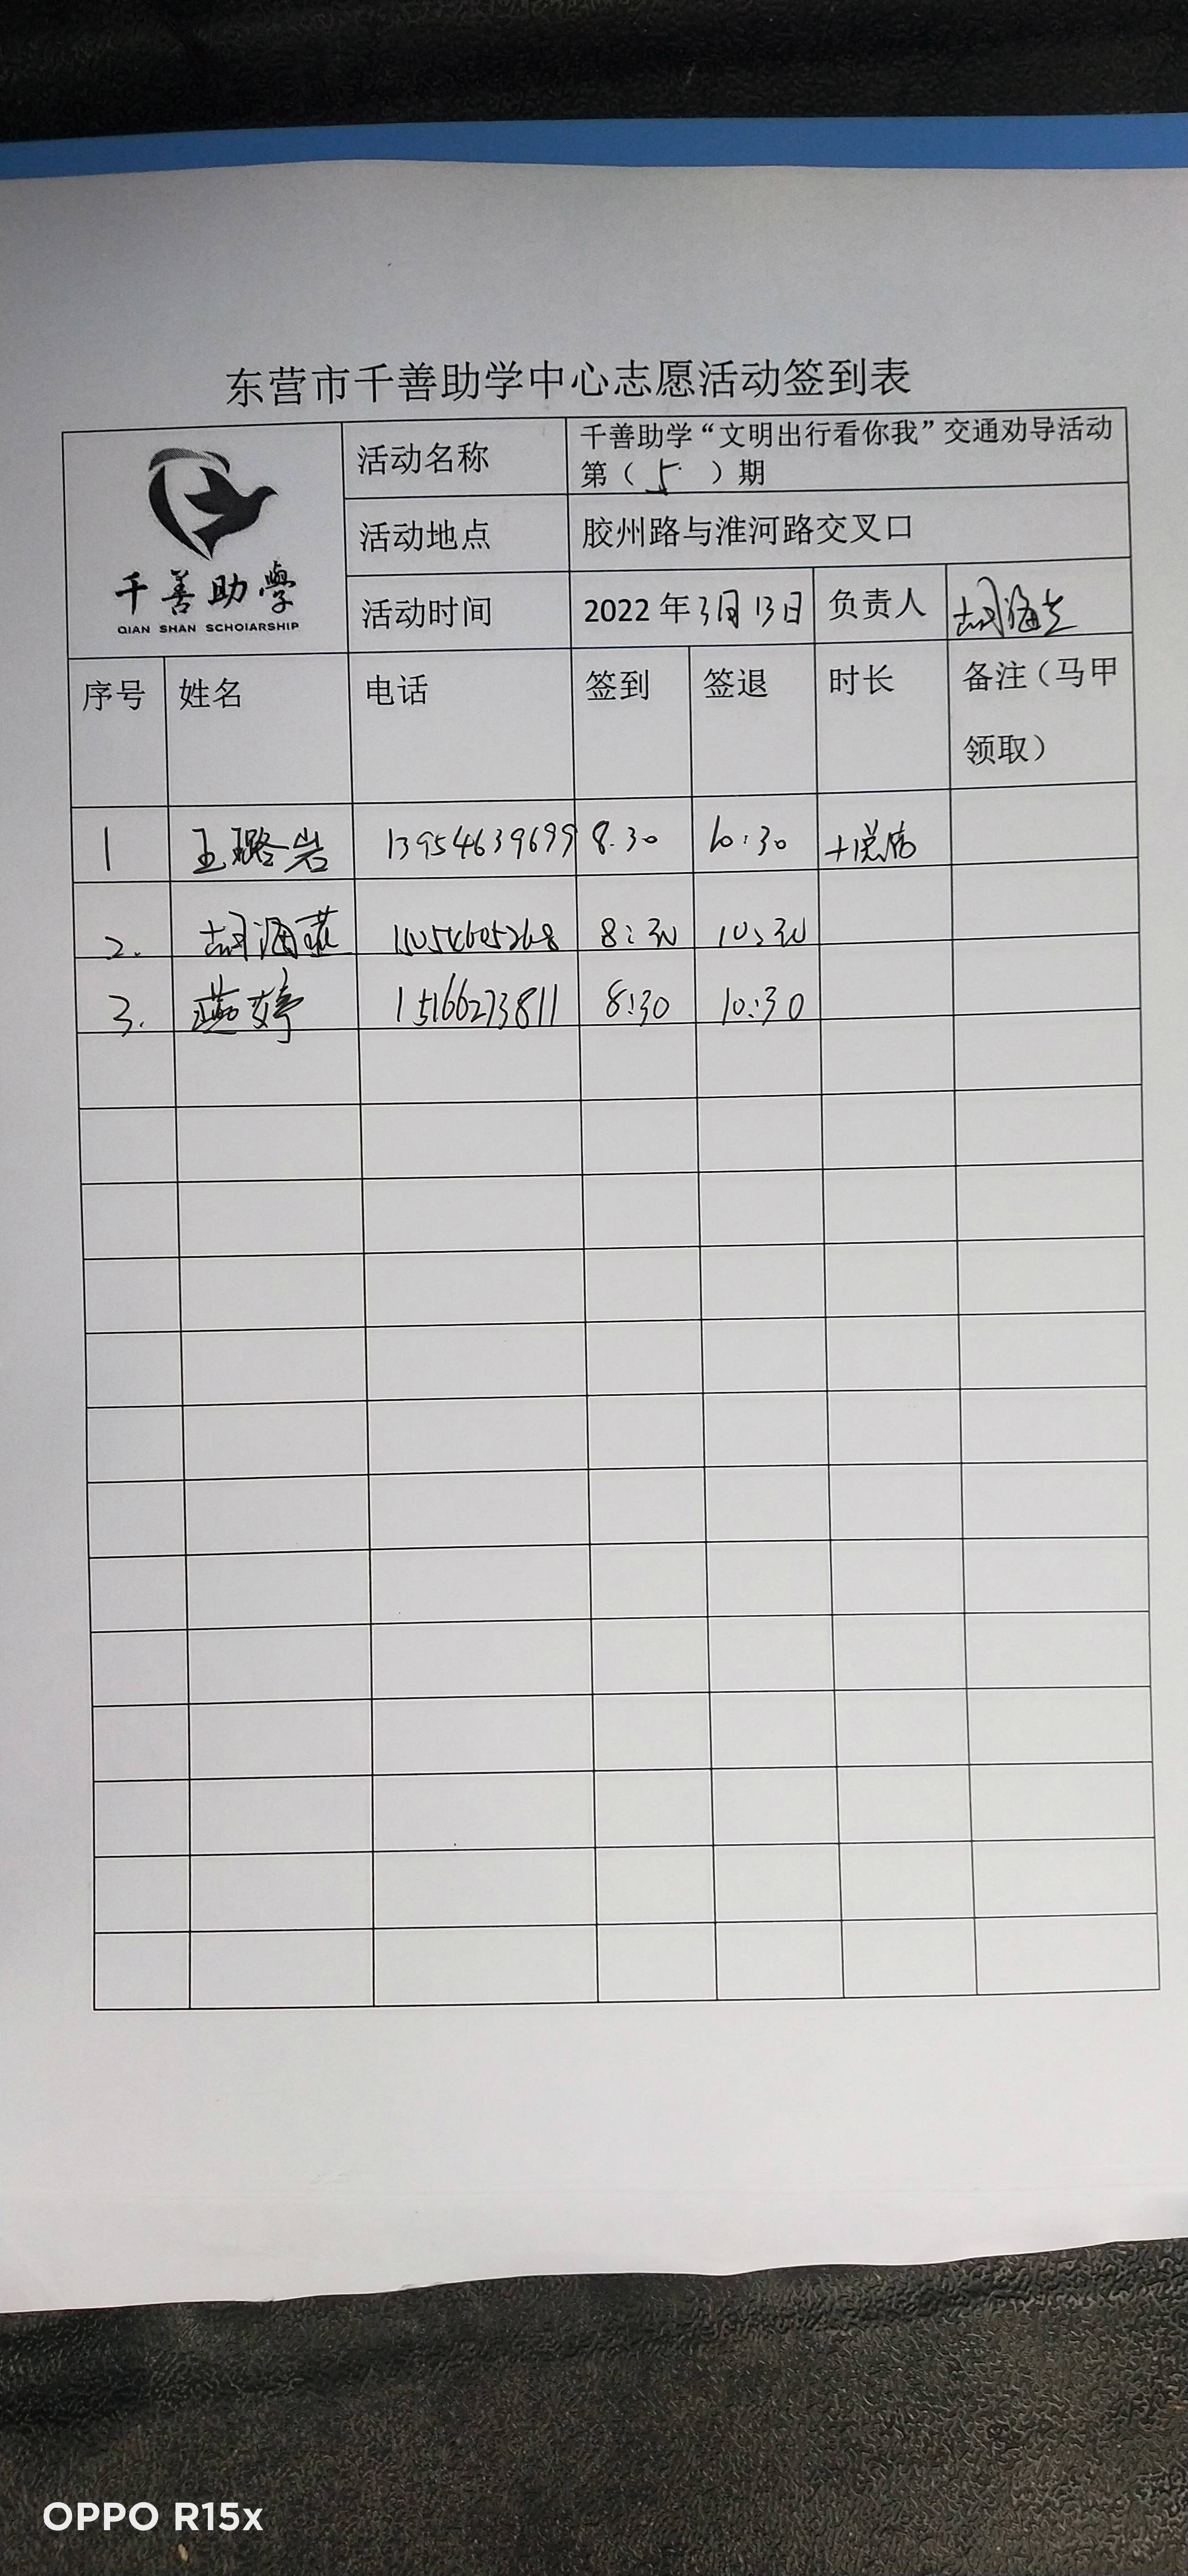 东营市千善助学中心志愿活动签到表
千善助學
QIAN SHAN SCHOIARSHIP
活动名称 千善助学“文明出行看你我”交通劝导活动
第（5）期
活动地点 胶州路与淮河路交叉口
活动时间 2022年3月13日 负责人
序号 姓名 电话 签到 签退 时长 备注（马甲
领取）
1 王璐岩 13954639699 8.30 10:30
2. 胡海燕 8:30 10:30
3. 燕婷 15166273811 8:30 10:30
OPPO R15x